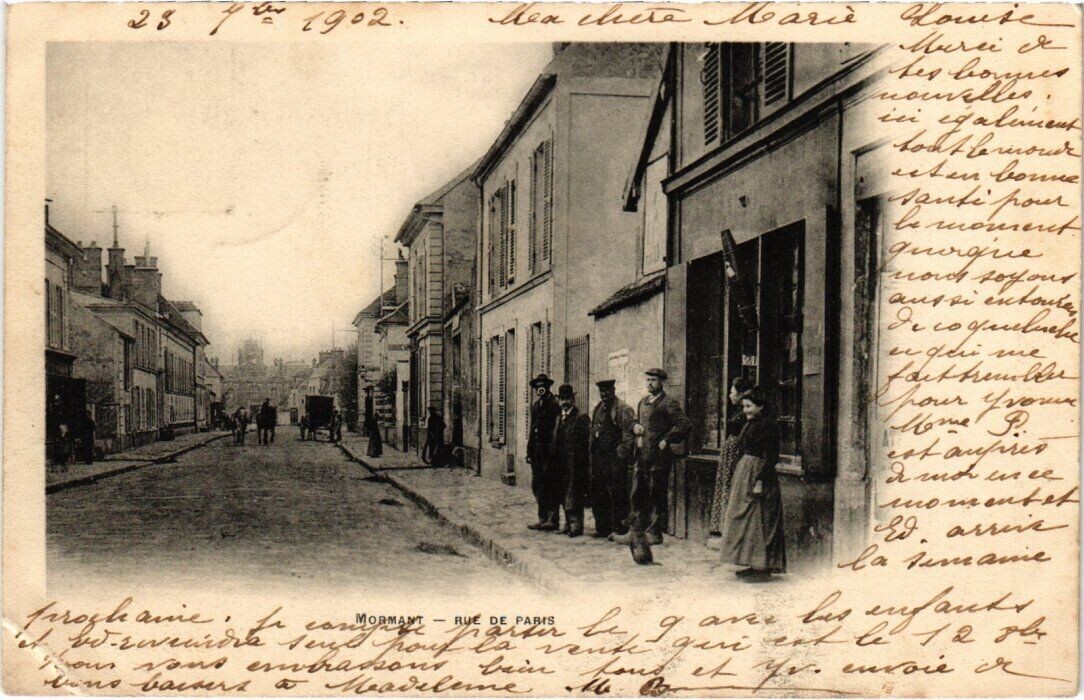 23 7bre 1902. Ma chère Marie Louise
Merci de
tes bonnes
nouvelles.
ici également
tout le monde
est en bonne
santé pour
le moment
quoique
nous soyons
aussi entourés
de coqueluche
ce qui me
fait trembler
pour Yvonne
Mme P.
est auprès
de moi en ce
moment et
Ed. arrive
la semaine
MORMANT — RUE DE PARIS
prochaine. Je compte partir le 9 avec les enfants
et Ed. reviendra seul pour la vente qui est le 12 8bre
nous vous embrassons bien tous et Yv. envoie de
bons baisers à Madeleine